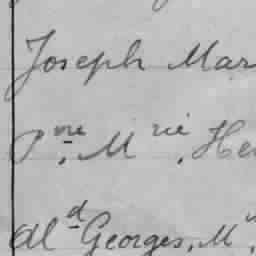 Joseph Mar
Pre. M rie. Hen
Ald Georges. M